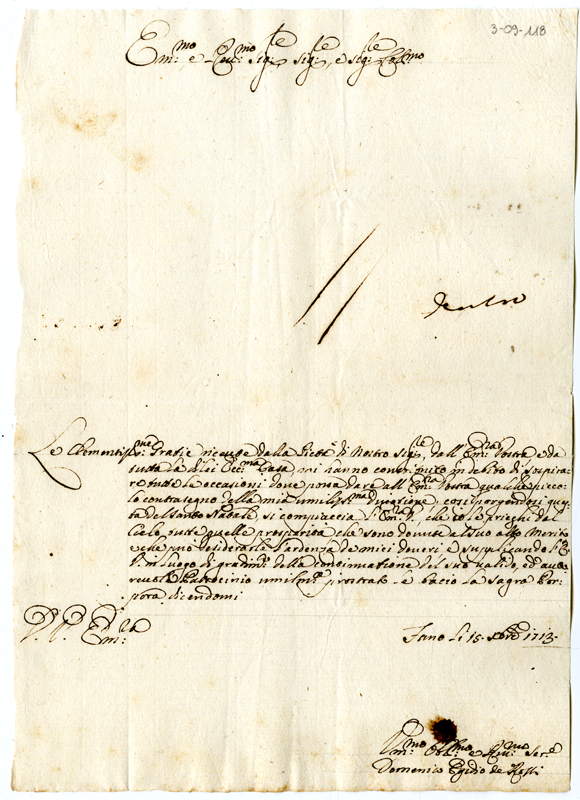 3-09-118
Em.mo e Rev.mo Sig.re Sig.re, e Sig.re Col.mo
Le Clementiss.me Gratie riceute dalla Pietà di Nostro Sig.re, dall'Em.za Vostra e da
tutta la di lei Ecc.ma Casa, mi hanno constituito in debito di sospira-
re tutte le occasioni dove possa dare all'Em.za Vostra qualche picco-
lo contrasegno della mia umiliss.ma divozione, così porgendomi ques-
ta del Santo Natale, si compiaccia l'Em.za V., che io le prieghi dal
Cielo tutte quelle prosperità che sono dovute al Suo alto Merito
e che può desiderarle l'ardenza de miei doveri e supplicando l'Em.
V. in luogo di della continuatione del suo valido, ed auto-
revole Patrocinio umilm.te prostrato le bacio la Sagra Por-
pora dicendomi
D. V. Em.za
Fano li 15. Xbre 1713.
Um.mo Obl.mo Ser.e
Domenico Egidio de